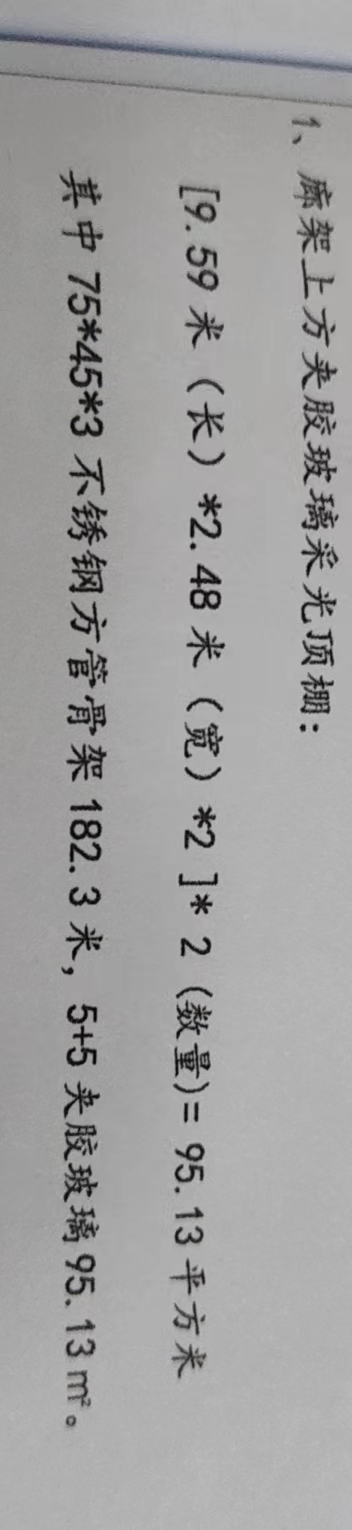 1、廊架上方夹胶玻璃采光顶棚：
[9.59米（长）*2.48米（宽）*2]*2(数量)=95.13平方米
其中75*45*3不锈钢方管骨架182.3米，5+5夹胶玻璃95.13㎡。